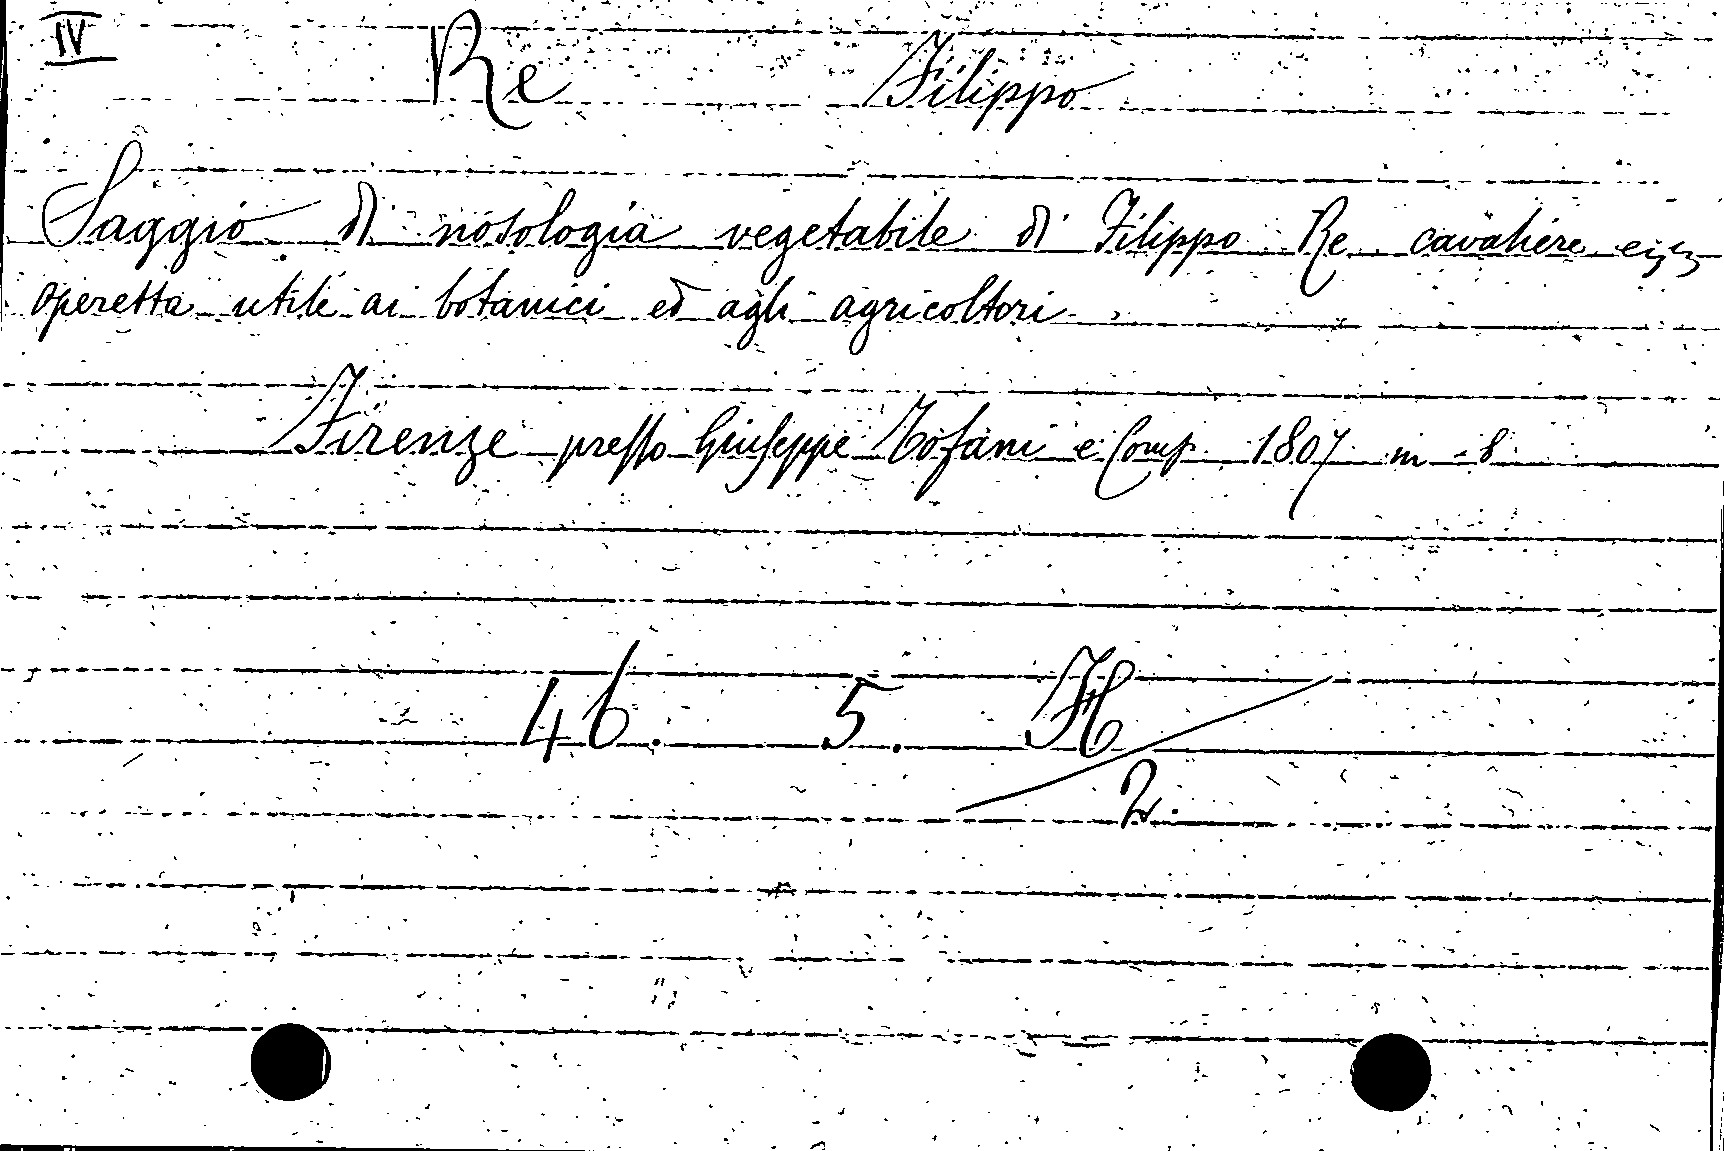 IV
Re Filippo
Saggio di nosologia vegetabile di Filippo Re cavaliere
operetta utile ai botanici ed agli agricoltori.
Firenze presso Giuseppe Tofani e Comp. 1807 in -8
46. 5. H
2.